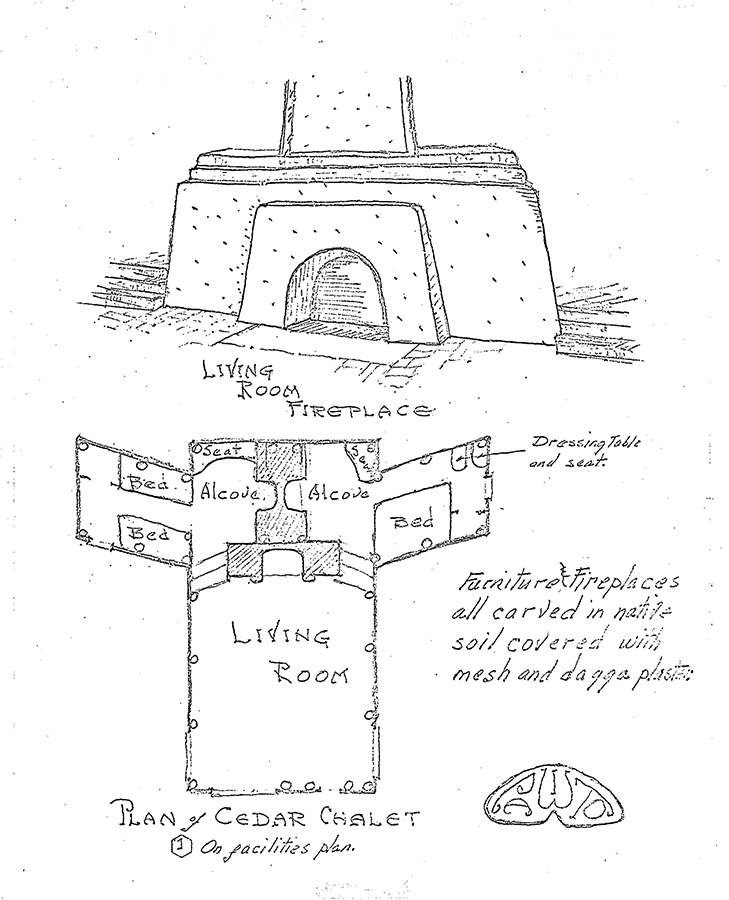 LIVING
ROOM
FIREPLACE
Seat
Seat
Dressing Table
and seat.
Bed
Alcove.
Alcove
Bed
Bed
Furniture & Fireplaces
all carved in native
soil covered with
mesh and dagga plaster
LIVING
ROOM
PLAN of CEDAR CHALET
1 On facilities plan.